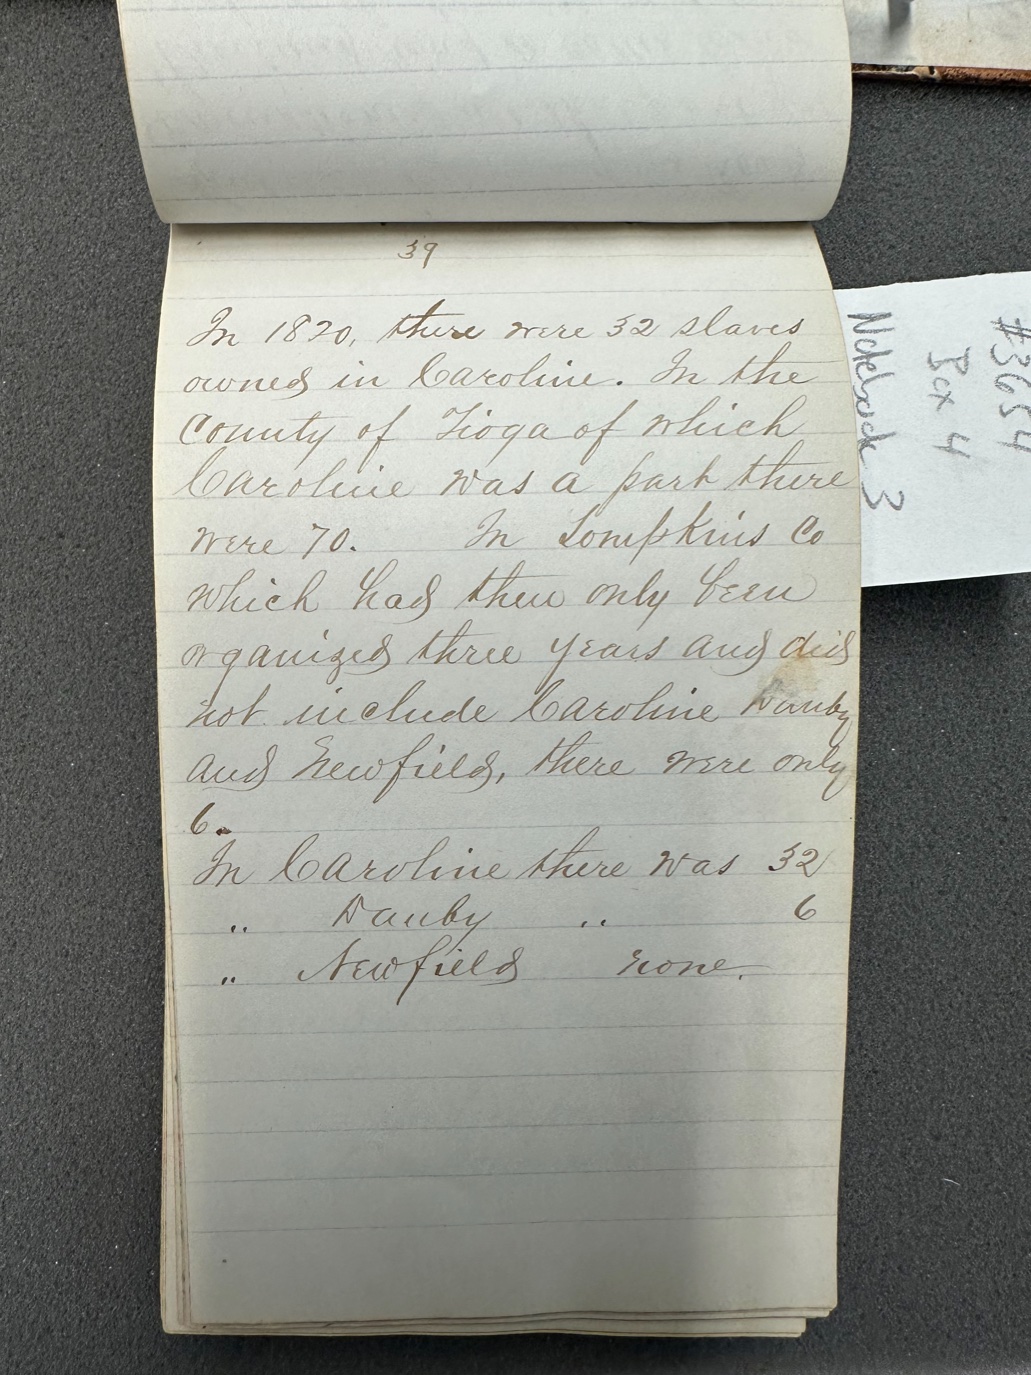 39
In 1820, there were 32 slaves
owned in Caroline. In the
County of Tioga of which
Caroline was a part there
were 70. In Tompkins Co
which had then only been
organized three years and did
not include Caroline Danby
and Newfield, there were only
6.
In Caroline there was 32
„ Danby „ 6
„ Newfield none.
#3654
Box 4
Notebook 3